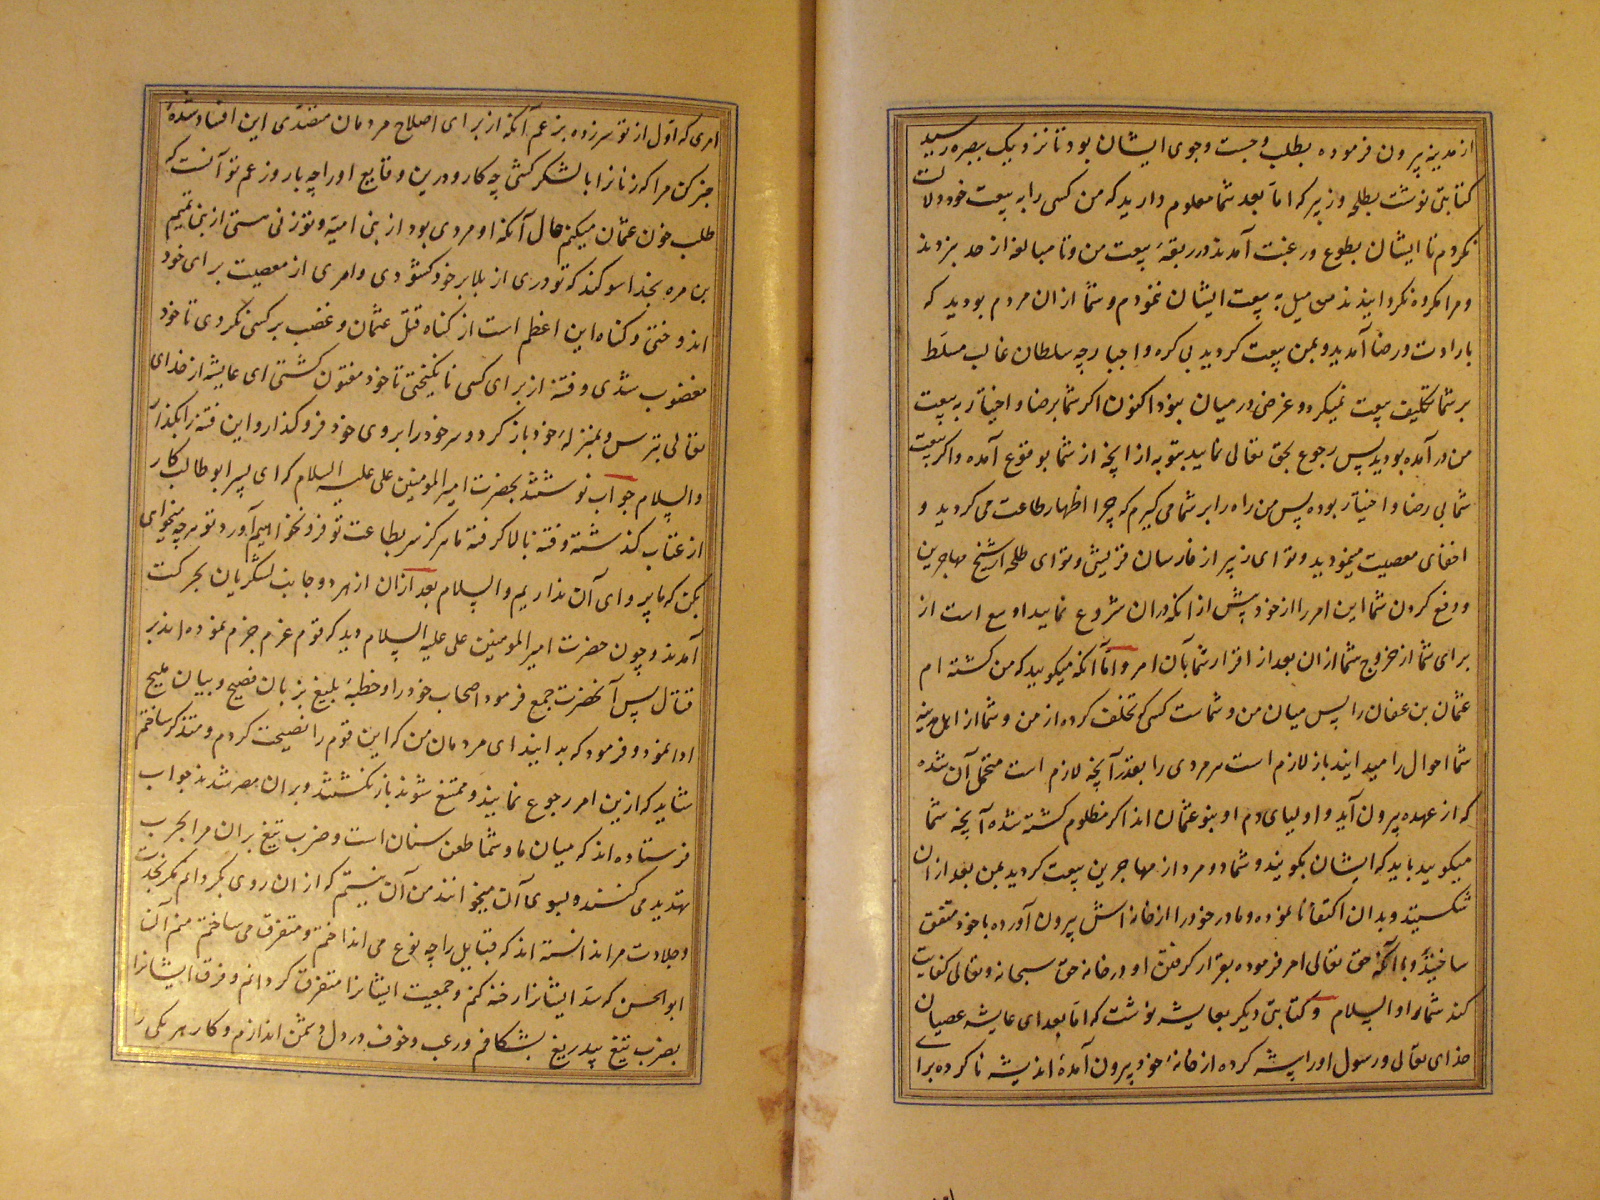 از مدینه بیرون فرموده بطلب و جست و جوی ایشان بود تا نزدیک بصره رسید
کتابتی نوشت بطلحه و زبیر که اما بعد شما معلوم دارید که من کسی را به بیعت خود دلالت
نکردم تا ایشان بطوع و رغبت آمدند در ربقهٔ بیعت من و تا مبالغه از حد بردند
و مرا مکروه نکردانیدند من میل به بیعت ایشان ننمودم و شما از ان مردم بودید که
بارادت و رضا آمدید و بمن بیعت کردید بی کره و اجبار چه سلطان غالب مسلط
بر شما تکلیف بیعت نمیکرد و غرضی در میان نبود اکنون اکر شما برضا و اختیار به بیعت
من در آمده بودید پس رجوع بحق تعالی نمایید بتوبه از انچه از شما بوقوع آمده و اکر بیعت
شما بی رضا و اختیار بوده پس من راه را بر شما می کیرم که چرا اظهار طاعت می کردید و
اخفای معصیت مینمودید و تو ای زبیر از فارسان قریشی و تو ای طلحه شیخ مهاجرین
و دفع کردن شما این امر را از خود پیش از انکه در ان شروع نمایید اوسع است از
برای شما از خروج شما از ان بعد از اقرار شما بآن امر و اما انکه میکویید که من کشته ام
عثمان بن عفان را پس میان من و شماست کسی که تخلف کرده از من و شما از اهل مدینه
شما احوال را میدانید باز لازم است هر مردی را بقدر آنچه لازم است متحمل آن شده
که از عهده بیرون آید و اولیای دم او بنو عثمان اند اکر مظلوم کشته شده آنچه شما
میکویید باید که ایشان بکویند و شما دو مرد از مهاجرین بیعت کردید بمن بعد از ان
شکستید و بدان اکتفا نانموده و مادر خود را از خانه اش بیرون آورده با خود متفق
ساختید و با آنکه حق تعالی امر فرموده بقرار کرفتن او در خانه حق سبحانه و تعالی کفایت
کند شما را و السلام و کتابتی دیکر بعایشه نوشت که اما بعد ای عایشه عصیان
خدای تعالی و رسول او را پیشه کرده از خانهٔ خود بیرون آمدهٔ اندیشه ناکرده برای
امری که اول از تو سر زده بزعم آنکه از برای اصلاح مردمان متصدی این افساد شدهٔ
خبر کن مرا که زنانرا با لشکر کشی چه کار و درین وقایع اورا چه بار و زعم تو آنست که
طلب خون عثمان میکنم حال آنکه او مردی بود از بنی امیه و تو زنی هستی از بنی تمیم
بن مره بخدا سوکند که تو دری از بلا بر خود کشودی و امری از معصیت برای خود
اندوختی و کناه این اعظم است از کناه قتل عثمان و غضب بر کسی نکردی تا خود
مغضوب شدی و فتنه از برای کسی نانکیختی تا خود مفتون کشتی ای عایشه از خدای
تعالی بترس و بمنزلهٔ خود باز کرد و سر خود را بروی خود فرو کذار و این فتنه را بکذار
والسلام جواب نوشتند بحضرت امیر المومنین علی علیه السلام که ای پسر ابو طالب کار
از عتاب کذشته و فتنه بالا کرفته ما هرکز سر بطاعت تو فرو نخواهیم آورد تو هر چه میخواهی
بکن که ما پروای آن نداریم والسلام بعد از ان از هر دو جانب لشکریان بحرکت
آمدند و چون حضرت امیر المومنین علی علیه السلام دید که قوم عزم جزم نموده اند بر
قتال پس آنحضرت جمع فرمود اصحاب خود را و خطبهٔ بلیغ بزبان فصیح و بیان ملیح
ادا نمود و فرمود که بدانید ای مردمان من که این قوم را نصیحت کردم و متذکر ساختم
شاید که ازین امر رجوع نمایند و ممتنع شوند باز نکشتند و بران مصر شدند جواب
فرستاده اند که میان ما و شما طعن سنان است و ضرب تیغ بران مرا بحرب
تهدید می کنند و بسوی آن میخوانند من آن نیستم که از ان روی بکردانم مکر نجدت
و جلادت مرا ندانسته اند که قبایل را چه نوع می انداختم و متفرق می ساختم منم آن
ابو الحسن که سد ایشانرا رخنه کنم و جمعیت ایشانرا متفرق کردانم و فرق ایشانرا
بضرب تیغ بیدریغ بشکافم و رعب و خوف در دل دشمن اندازم و کار هر یکی را